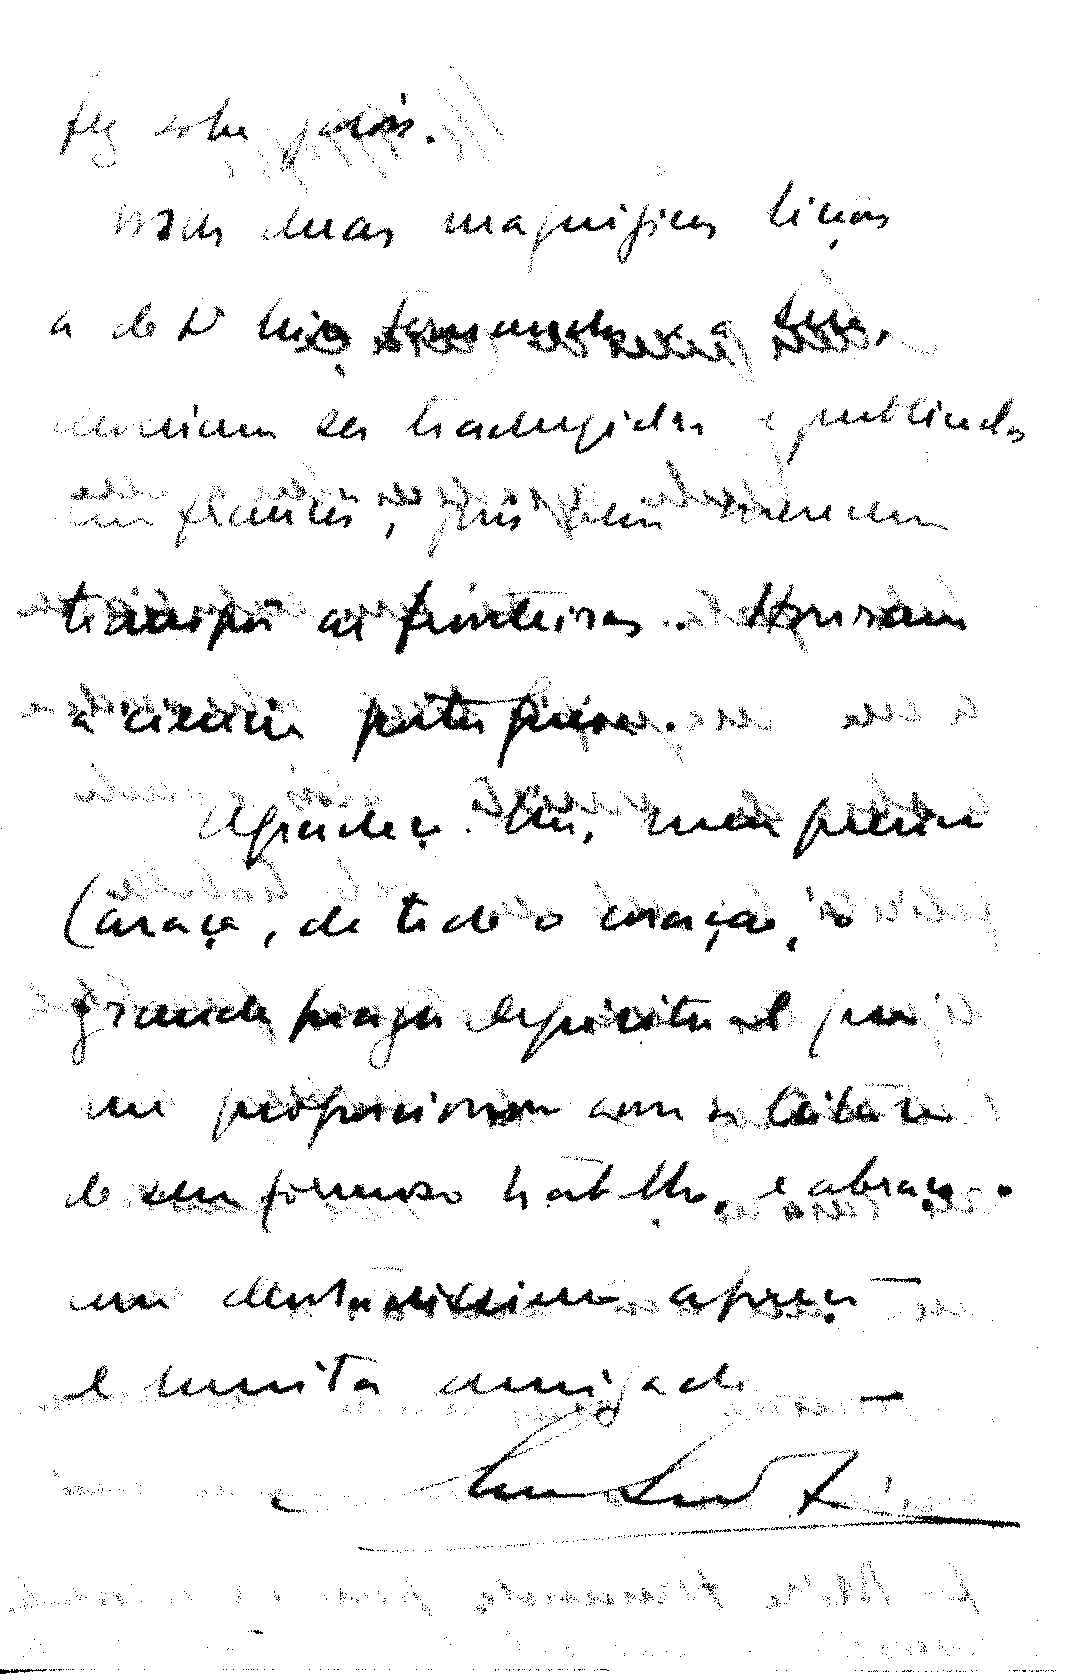 fez sobre
duas magnificas lições
a de D.
deveriam ser traduzidas e publicadas
em francês, pois bem merecem
transpôr as fronteiras. Honram
a ciencia portuguesa.
Agradeço-lhe, meu presado
Caraça, de todo o coração, o
grande prazer espiritual que
me proporcionou com a leitura
do seu formoso trabalho, e abraço-o
com apreço
e muita amizade